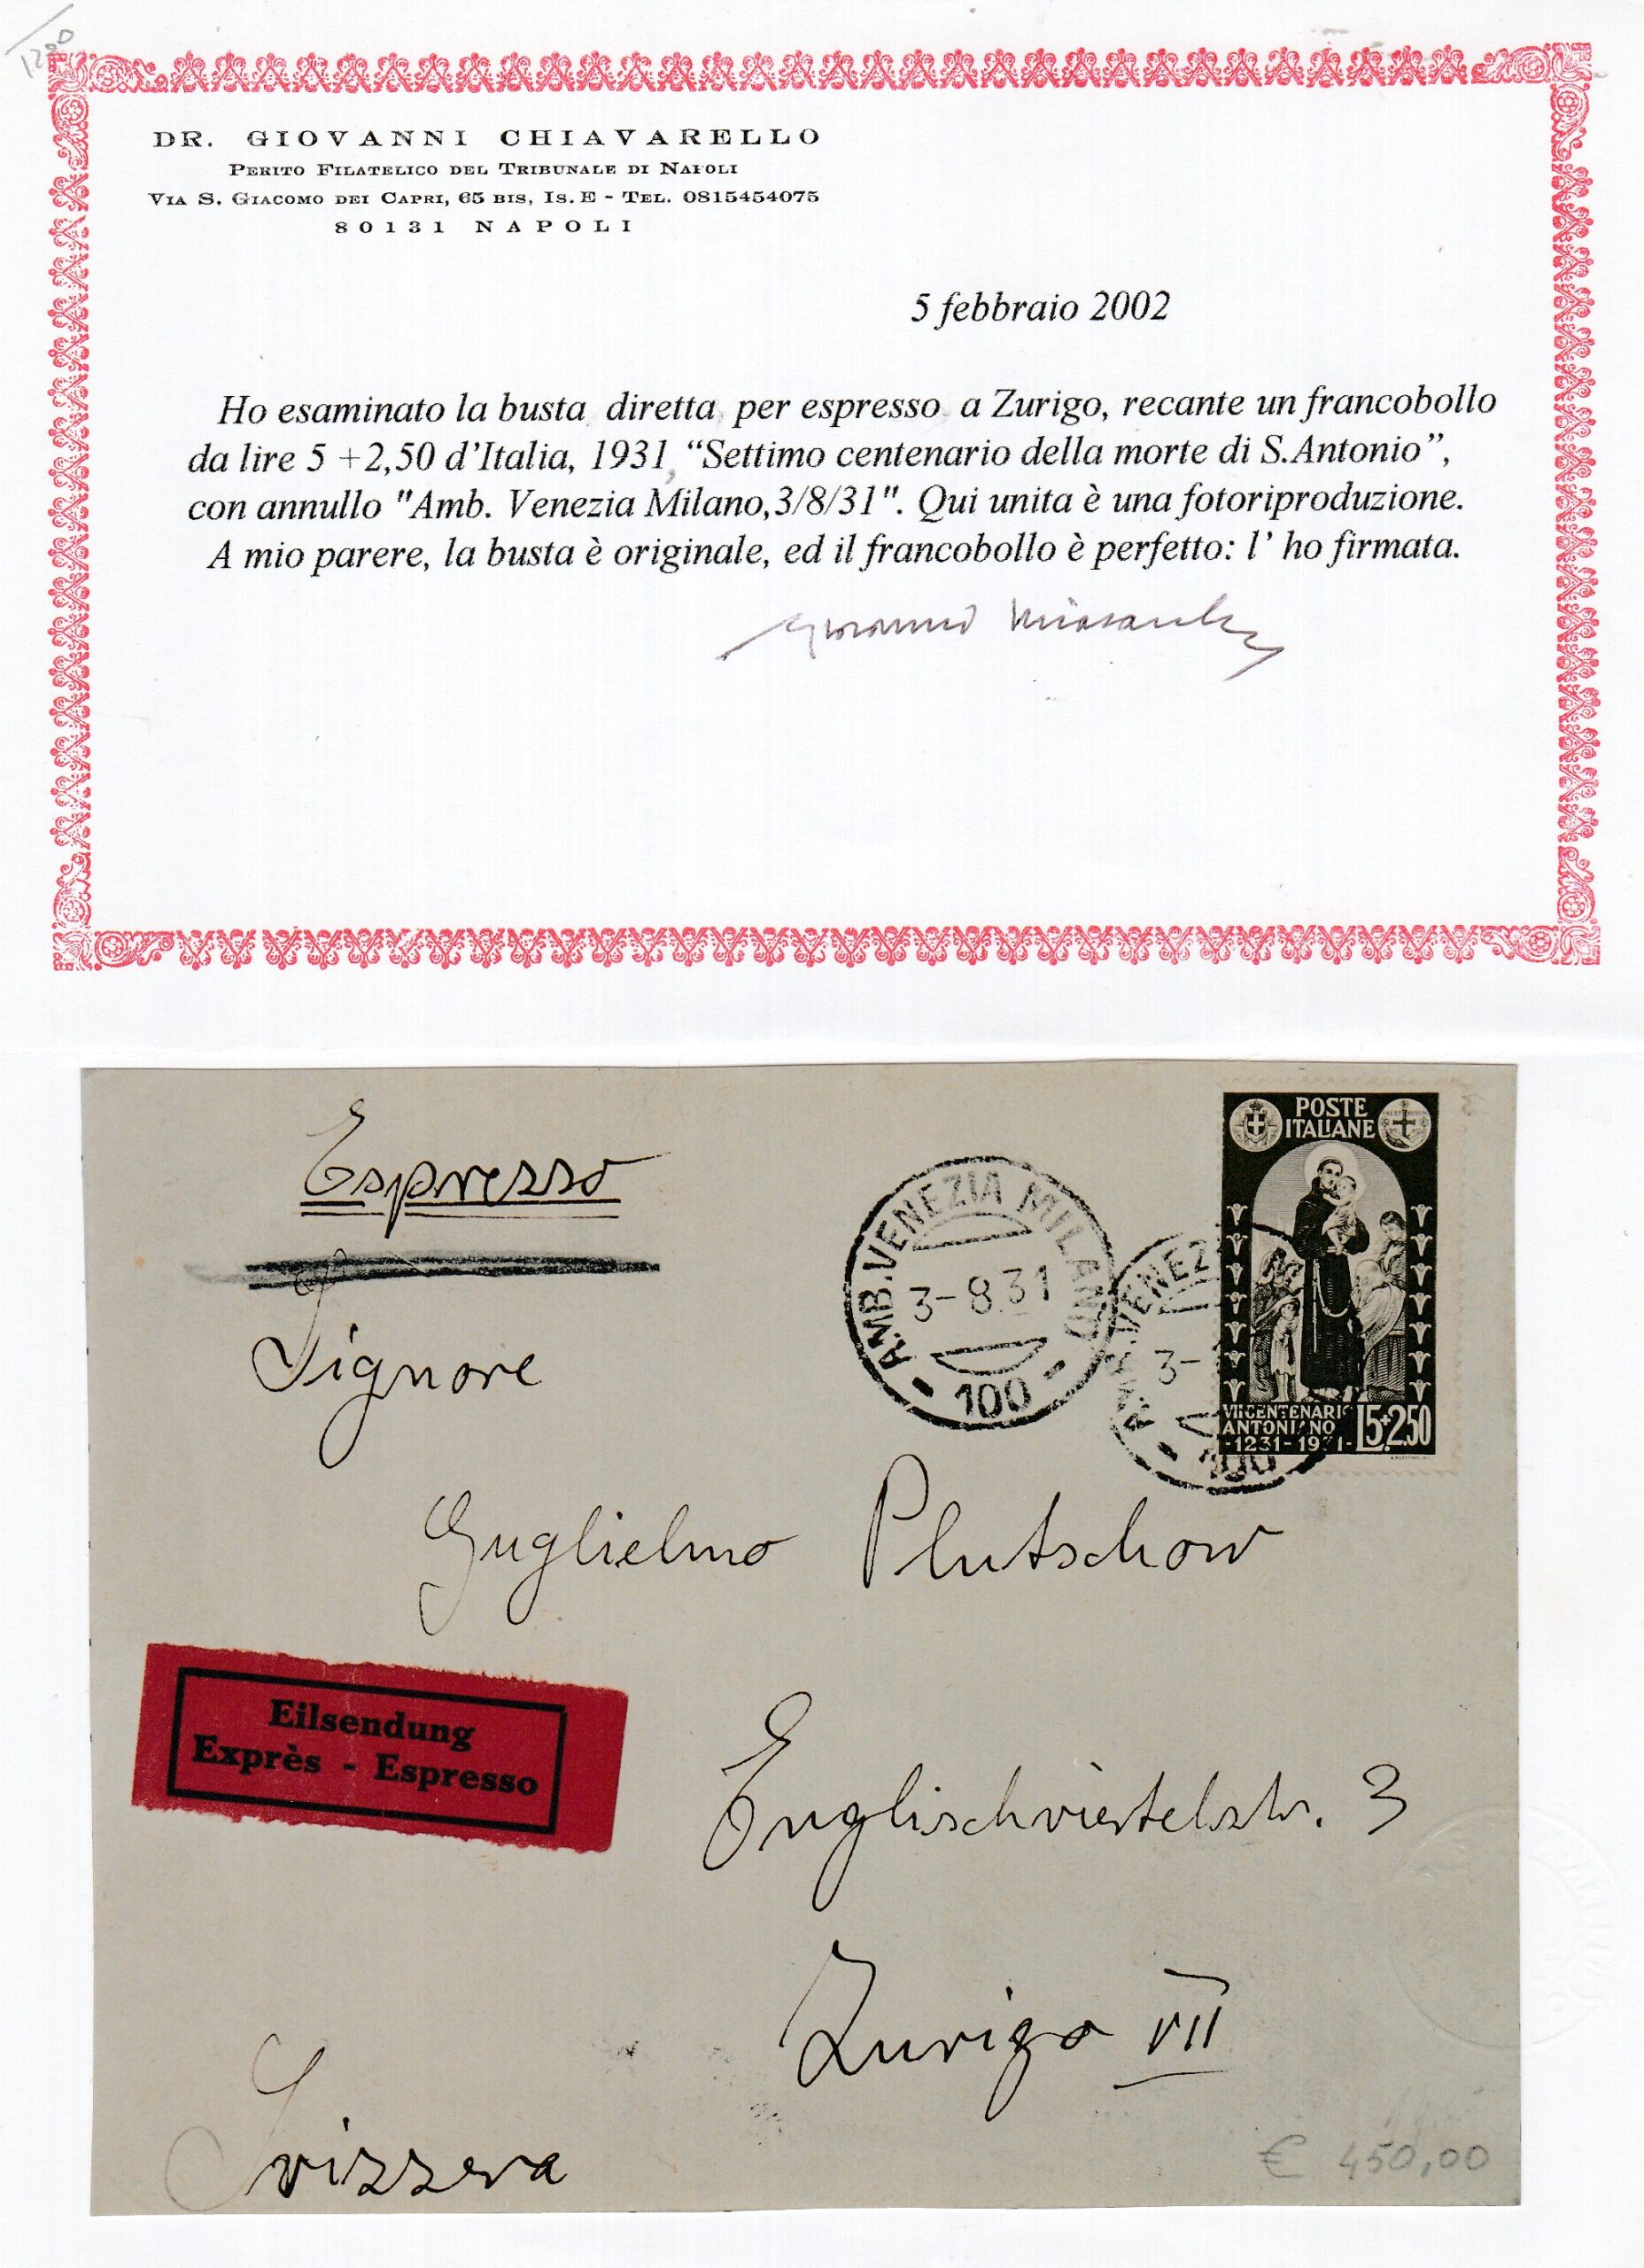 1200
DR. GIOVANNI CHIAVARELLO
PERITO FILATELICO DEL TRIBUNALE DI NAPOLI
VIA S. GIACOMO DEI CAPRI, 65 BIS, IS. E - TEL. 0815454075
80131 NAPOLI
5 febbraio 2002
Ho esaminato la busta diretta per espresso a Zurigo, recante un francobollo
da lire 5 +2,50 d'Italia, 1931, “Settimo centenario della morte di S.Antonio”,
con annullo "Amb. Venezia Milano,3/8/31". Qui unita è una fotoriproduzione.
A mio parere, la busta è originale, ed il francobollo è perfetto: l' ho firmata.
Espresso
POSTE
ITALIANE
AMB. VENEZIA MILANO
3-8.31
- 100 -
VENEZ
3-
100
VII CENTENARIO
ANTONIANO
-1231-1931-
L5+2.50
Signore
Guglielmo Plutschow
Eilsendung
Exprès - Espresso
Englischviertelstr. 3
Zurigo VII
Svizzera
€ 450,00